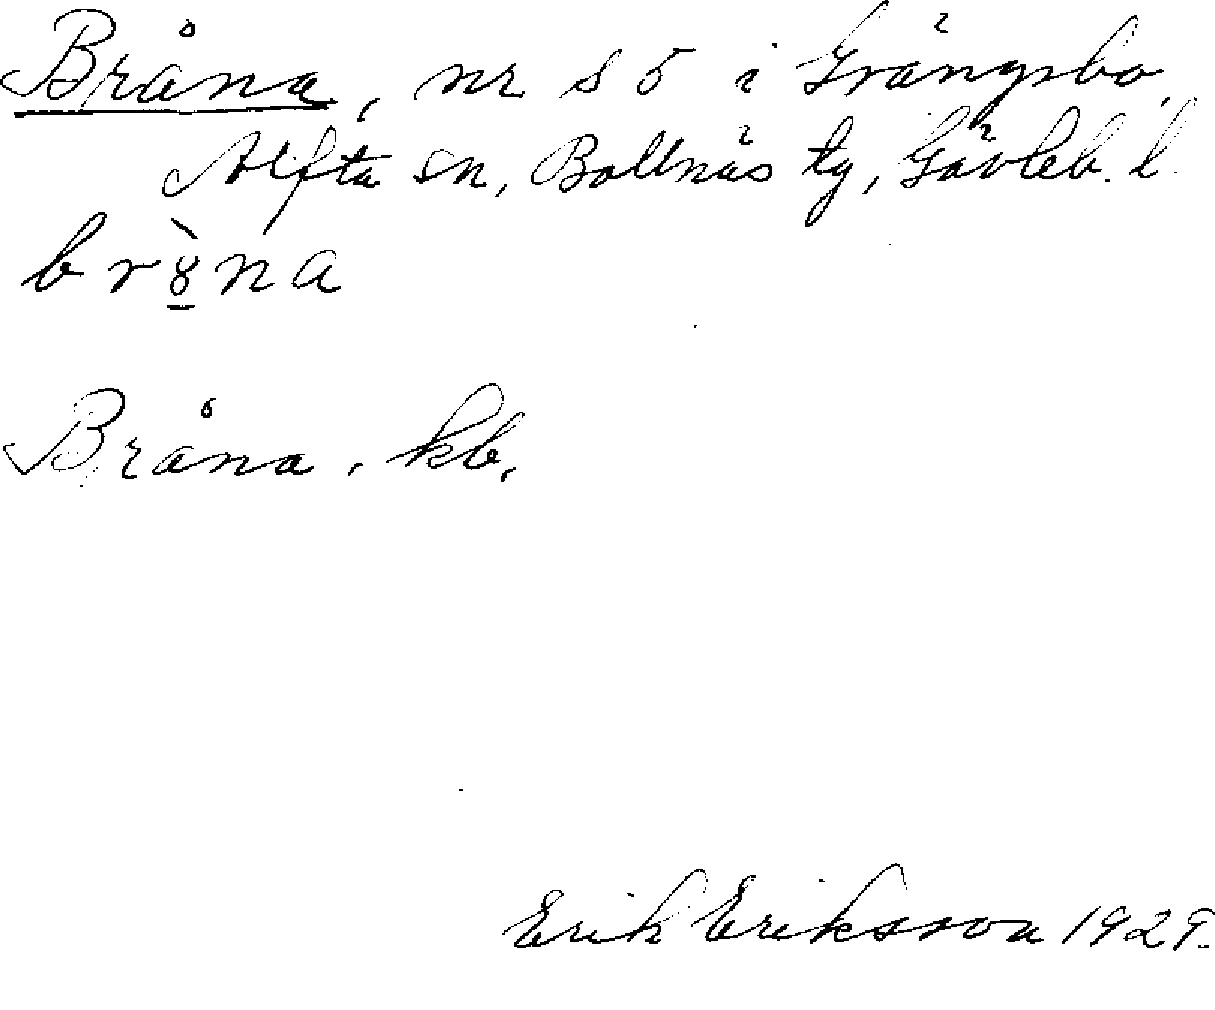 Bråna, nr s ö i Grängsbo,
Alfta sn, Bollnäs tg, Gävleb. l.
br8̲̀na
Bråna, kb.
Erik Eriksson 1929.